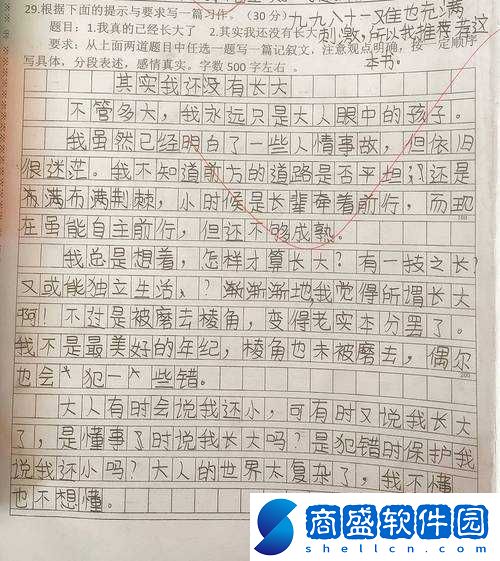 29.根据下面的提示与要求写一篇习作。(30分)
九九八十一难也充满
题目:1.我真的已经长大了 2.其实我还没有长大
刺激,所以我推荐看这
本书。
要求:从上面两道题目中任选一题写一篇记叙文,注意观点明确,按一定顺序
写具体,分段表述,感情真实。字数500字左右。
其实我还没有长大
不管多大,我永远只是大人眼中的孩子。
我虽然已经明白了一些人情事故,但依旧
很迷茫。我不知道前方的道路是否平坦,还是
布满布满荆棘,小时候是长辈牵着前行,而现
在虽能自主前行,但还不够成熟。
我总是想着,怎样才算长大?有一技之长?
又或能独立生活、?渐渐渐地,我觉得所谓长大
啊!不过是被磨去棱角,变得老实本分罢了。
我不是最美好的年纪,棱角也未被磨去,偶尔
也会犯一些错。
大人有时会说我还小,可有时又说我长大
了,是懂事了时说我长大吗?是犯错时保护我
说我还小吗?大人的世界太复杂了,我不懂
也不想懂。
商盛软件园
shellcn.com